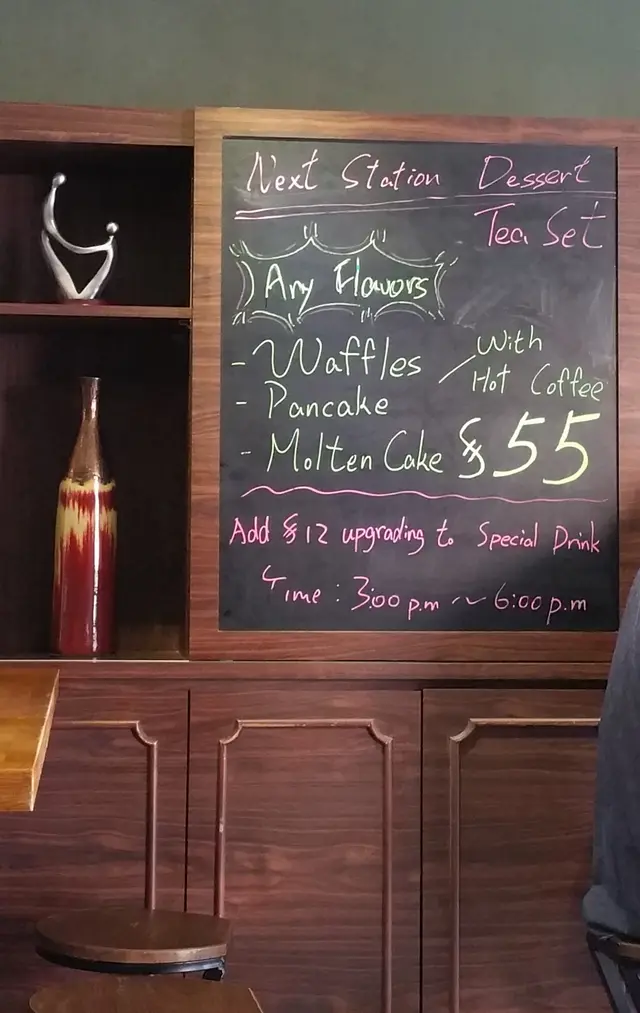 Next Station Dessert
Tea Set
Any Flavors
- Waffles
- Pancake
- Molten Cake
With
Hot Coffee
$55
Add $12 upgrading to Special Drink
Time : 3:00 p.m ~ 6:00 p.m